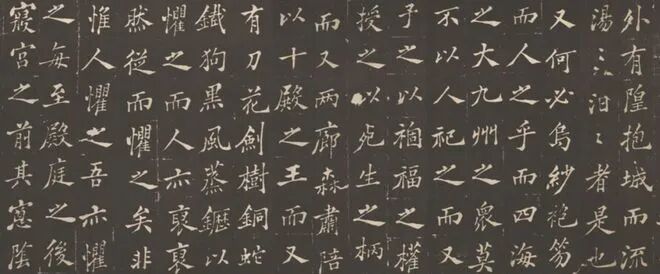 外有隍抱城而流
湯〻汩〻者是也
又何必烏紗袍笏
而人之乎而四海
之大九州之衆莫
不以人祀之而又
予之以禍福之權
授之以死生之柄
而又兩廊森肅陪
以十殿之王而又
有刀花劍樹銅蛇
鐵狗黑風蒸以
懼之而人亦裒裒
然從而懼之矣非
惟人懼之吾亦懼
之每至殿庭之後
寢宮之前其窻陰